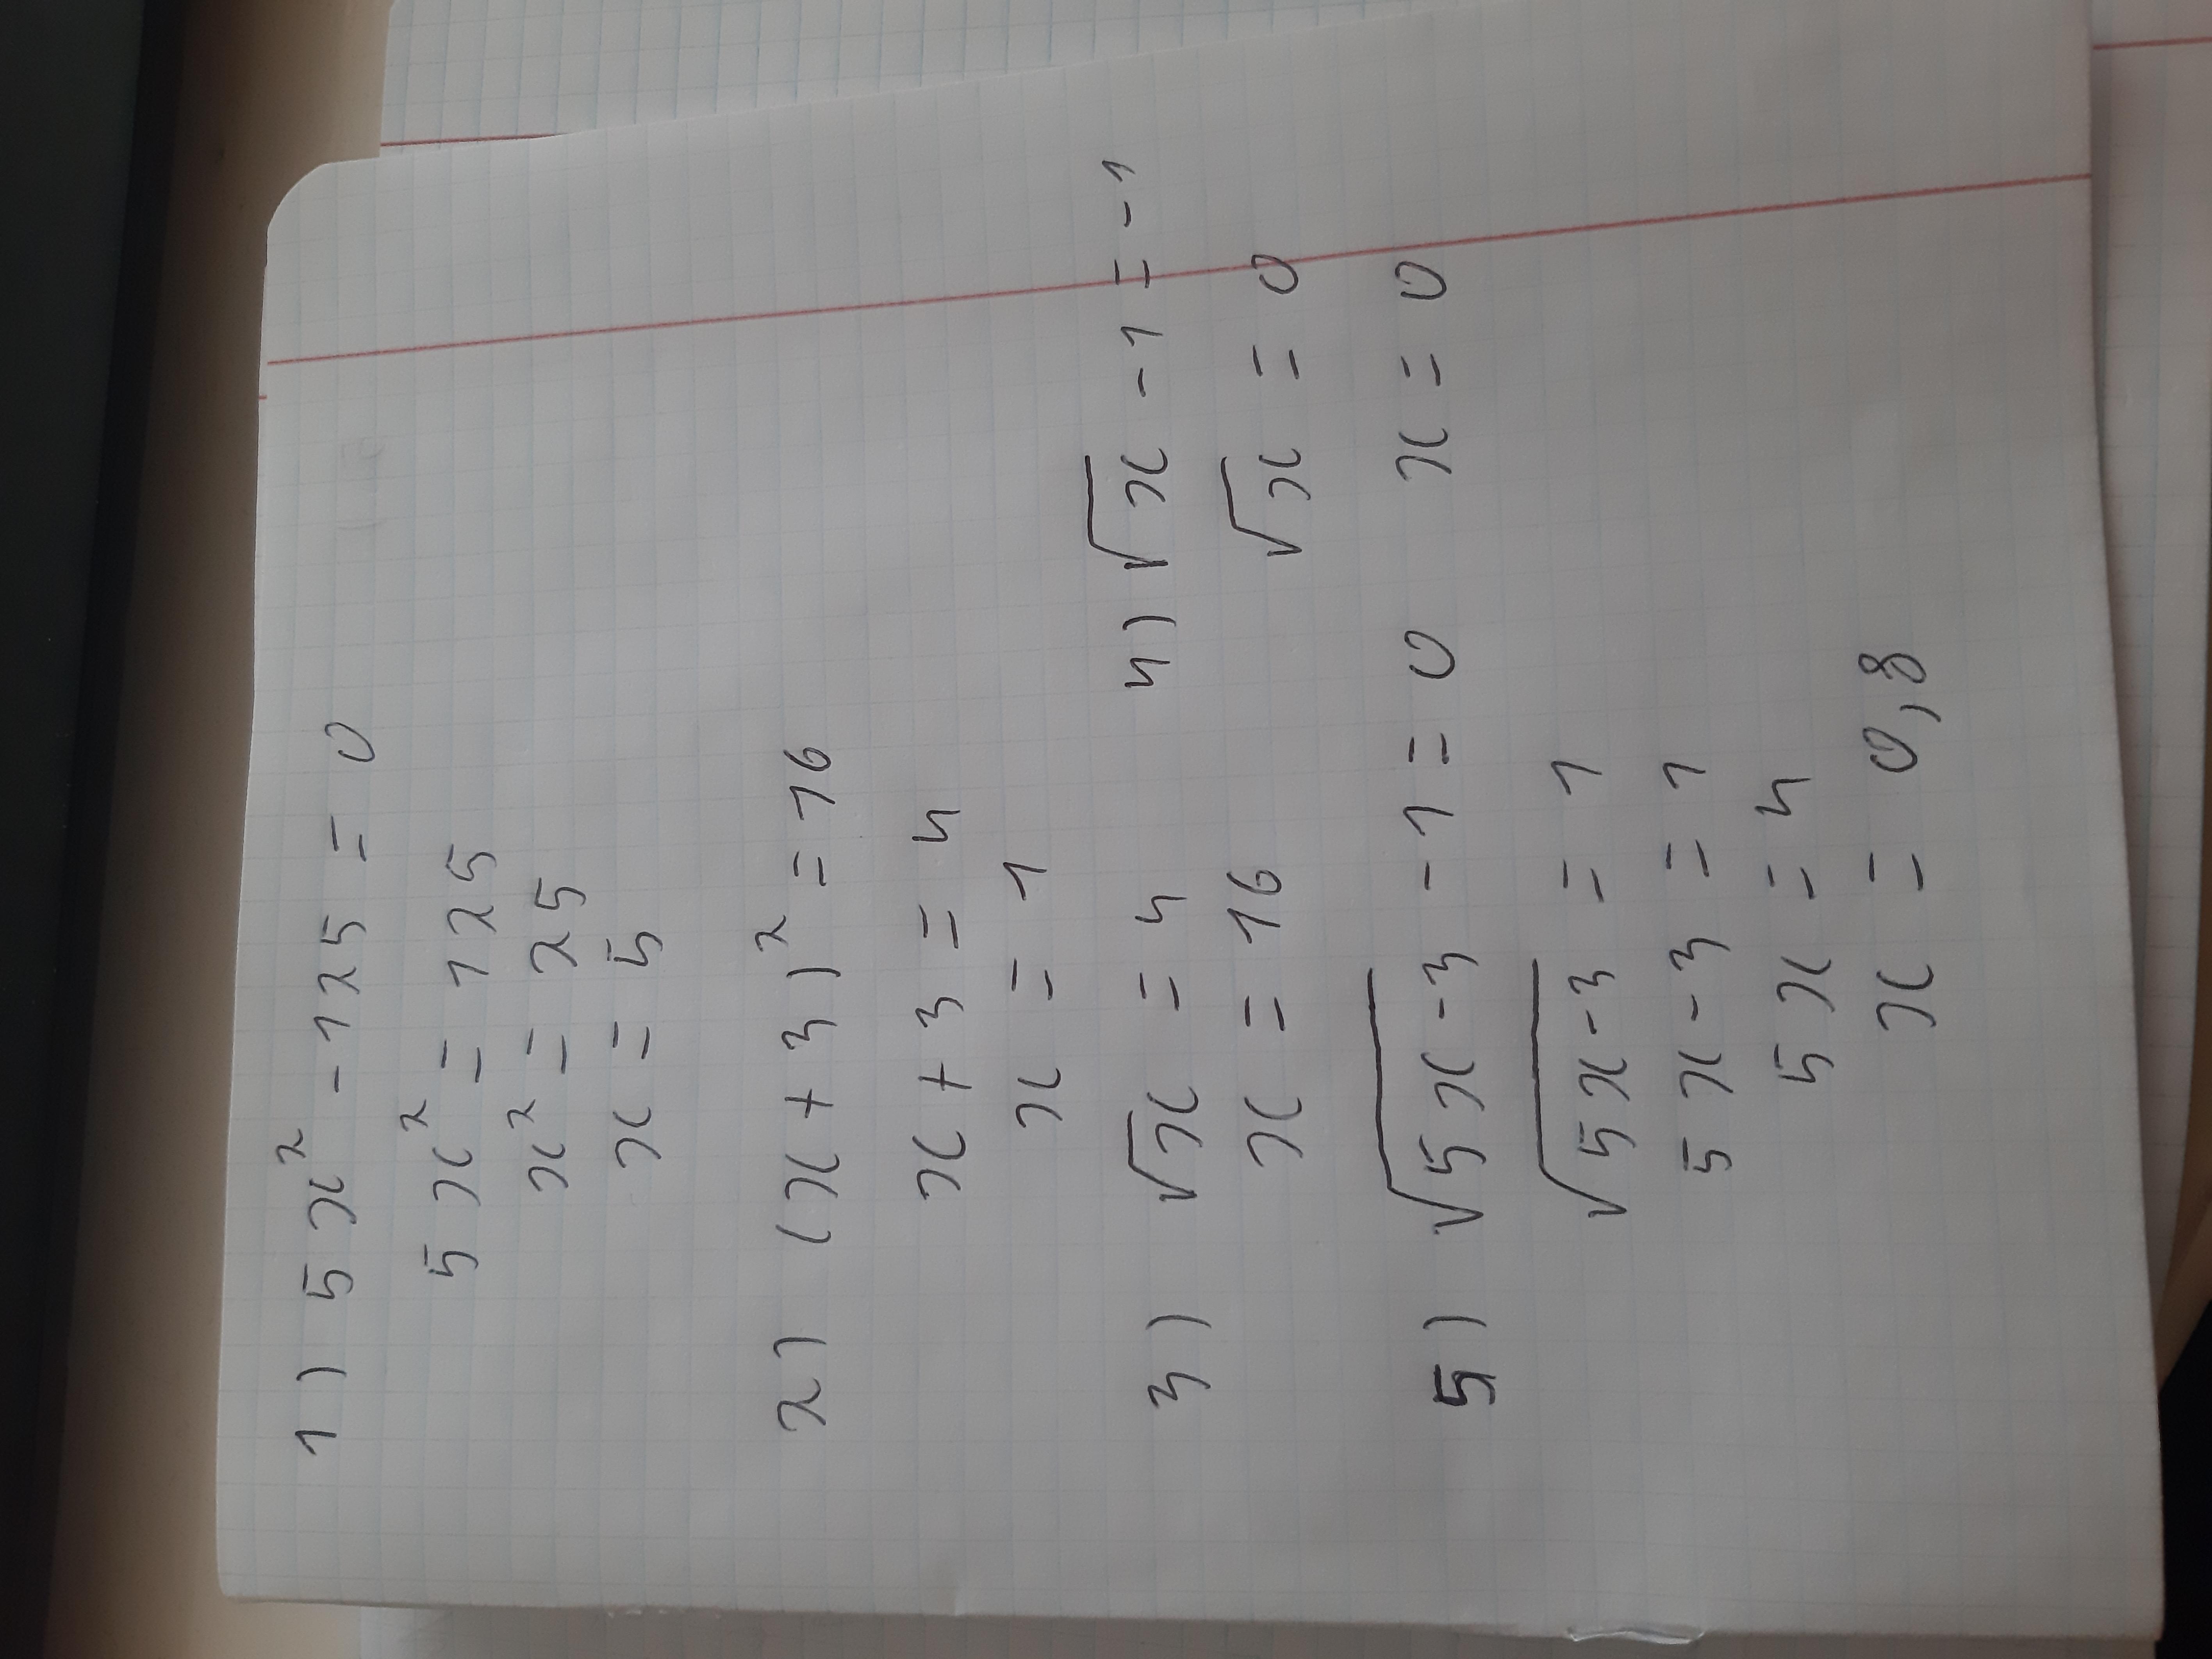 1) 5x² - 125 = 0
5x² = 125
x² = 25
x = 5
2) (x + 3)² = 16
x + 3 = 4
x = 1
3) √x = 4
x = 16
4) √x - 1 = -1
√x = 0
x = 0
5) √5x-3 - 1 = 0
√5x-3 = 1
5x-3 = 1
5x = 4
x = 0,8